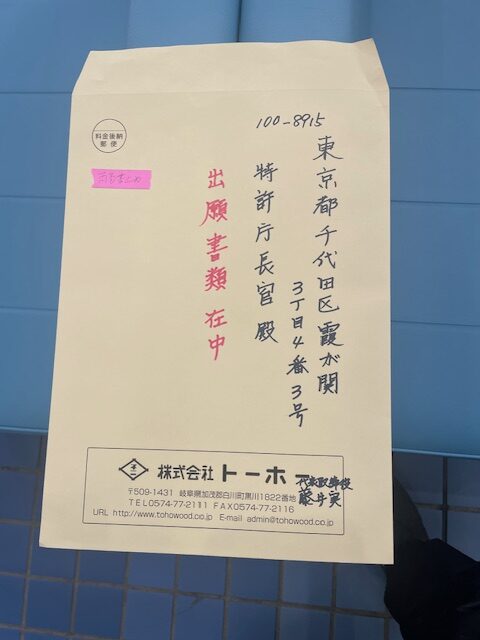 料金後納
郵便
100-8915
東京都千代田区霞が関
3丁目4番3号
特許庁長官殿
出願書類在中
株式会社トーホー
代表取締役
藤井実
〒509-1431 岐阜県加茂郡白川町黒川1822番地
TEL0574-77-2111 FAX0574-77-2116
URL http://www.tohowood.co.jp E-mail admin@tohowood.co.jp